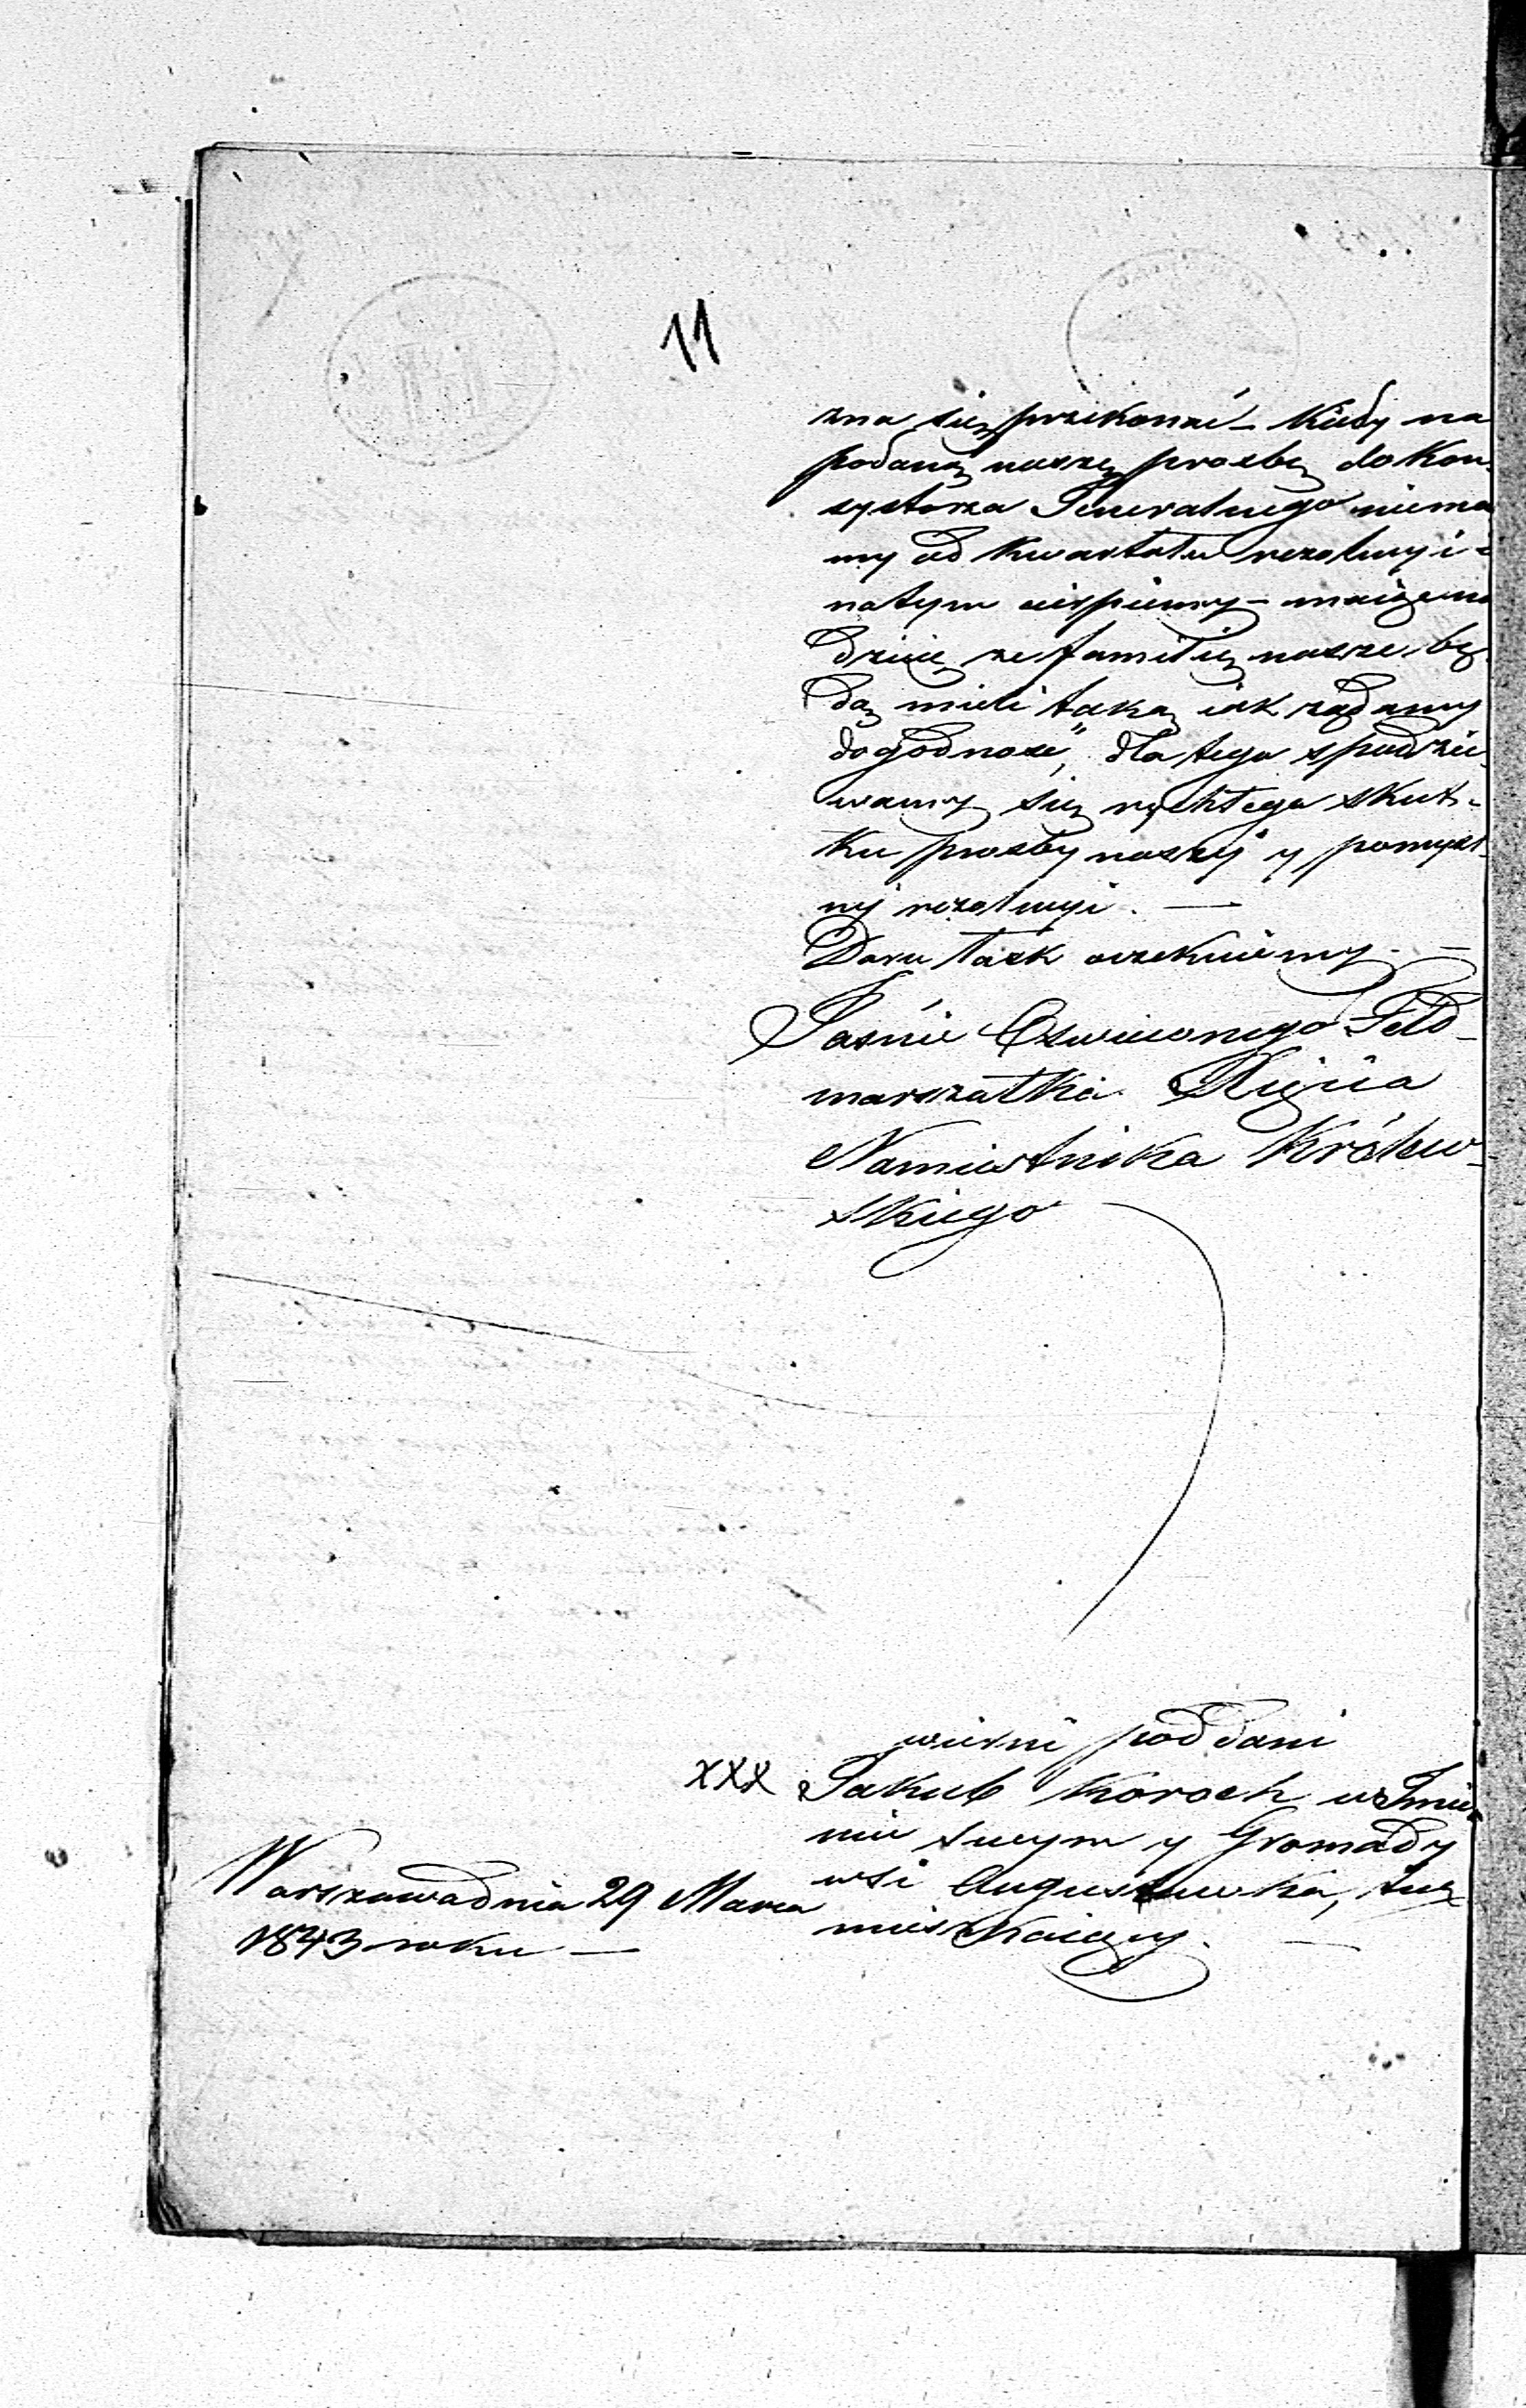 11
zna się przekonać – Kiedy na
podaną naszę prosbę do Kon-
systorza Generalnego niema
my od Kwartału rezolucyi i
natym cierpiemy –
że familię nasze bę-
dą mieli taką iak rządamy
dogodnosć", dla tego spodzie-
wamy się rychłego skut-
ku prosby naszej y pomysl-
nej rezolucyi. —
Daru łask oczekuiemy. =
Jaśnie Oswieconego Feld-
marszałka Xięcia
Namiestnika Królew-
skiego
wierni poddani
xxx Jakub Koroch w Imie-
niu swym y Gromady
wsi Augustuwka, tuż
mieszkaiący. —
Warszawa dnia 29 Marca
1843 roku —